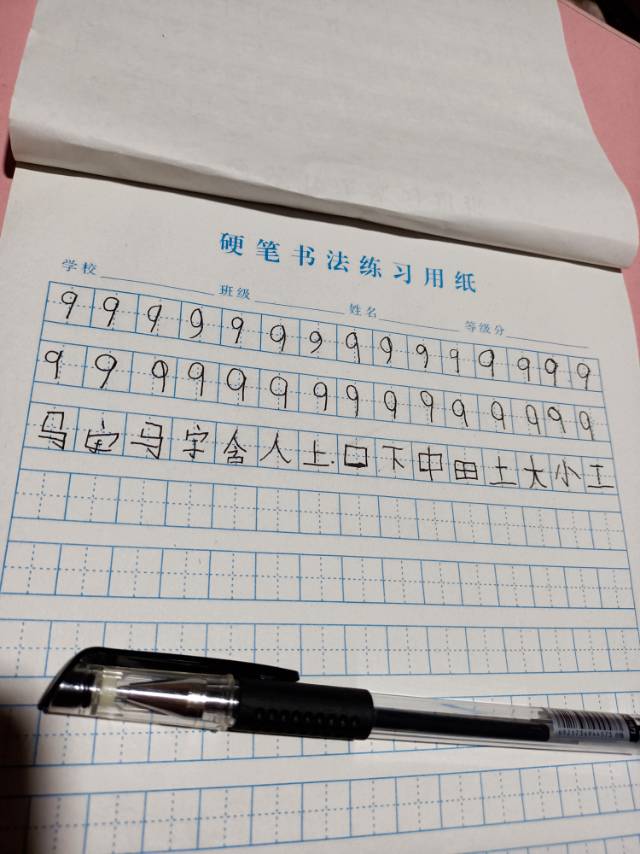 硬笔书法练习用纸
学校 班级 姓名 等级分
9 9 9 9 9 9 9 9 9 9 9 9 9 9 9
9 9 9 9 9 9 9 9 9 9 9 9 9 9 9
马 宝 马 字 含 人 上 口 下 中 田 土 大 小 工